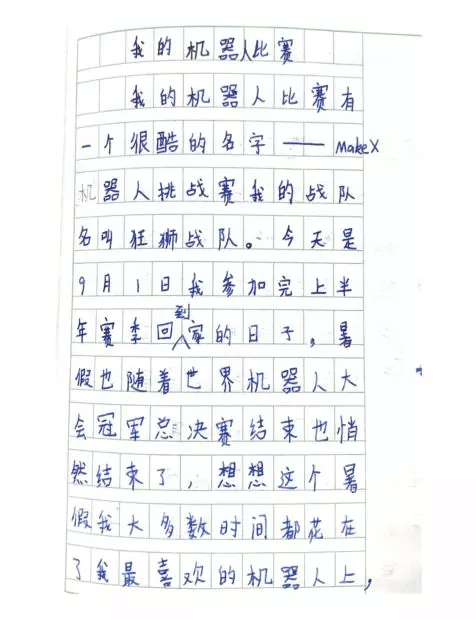 我的机器人比赛
我的机器人比赛有
一个很酷的名字——MakeX
机器人挑战赛我的战队
名叫狂狮战队。今天是
9月1日我参加完上半
年赛季回到家的日子,暑
假也随着世界机器人大
会冠军总决赛结束也悄
然结束了,想想这个暑
假我大多数时间都花在
了我最喜欢的机器人上,